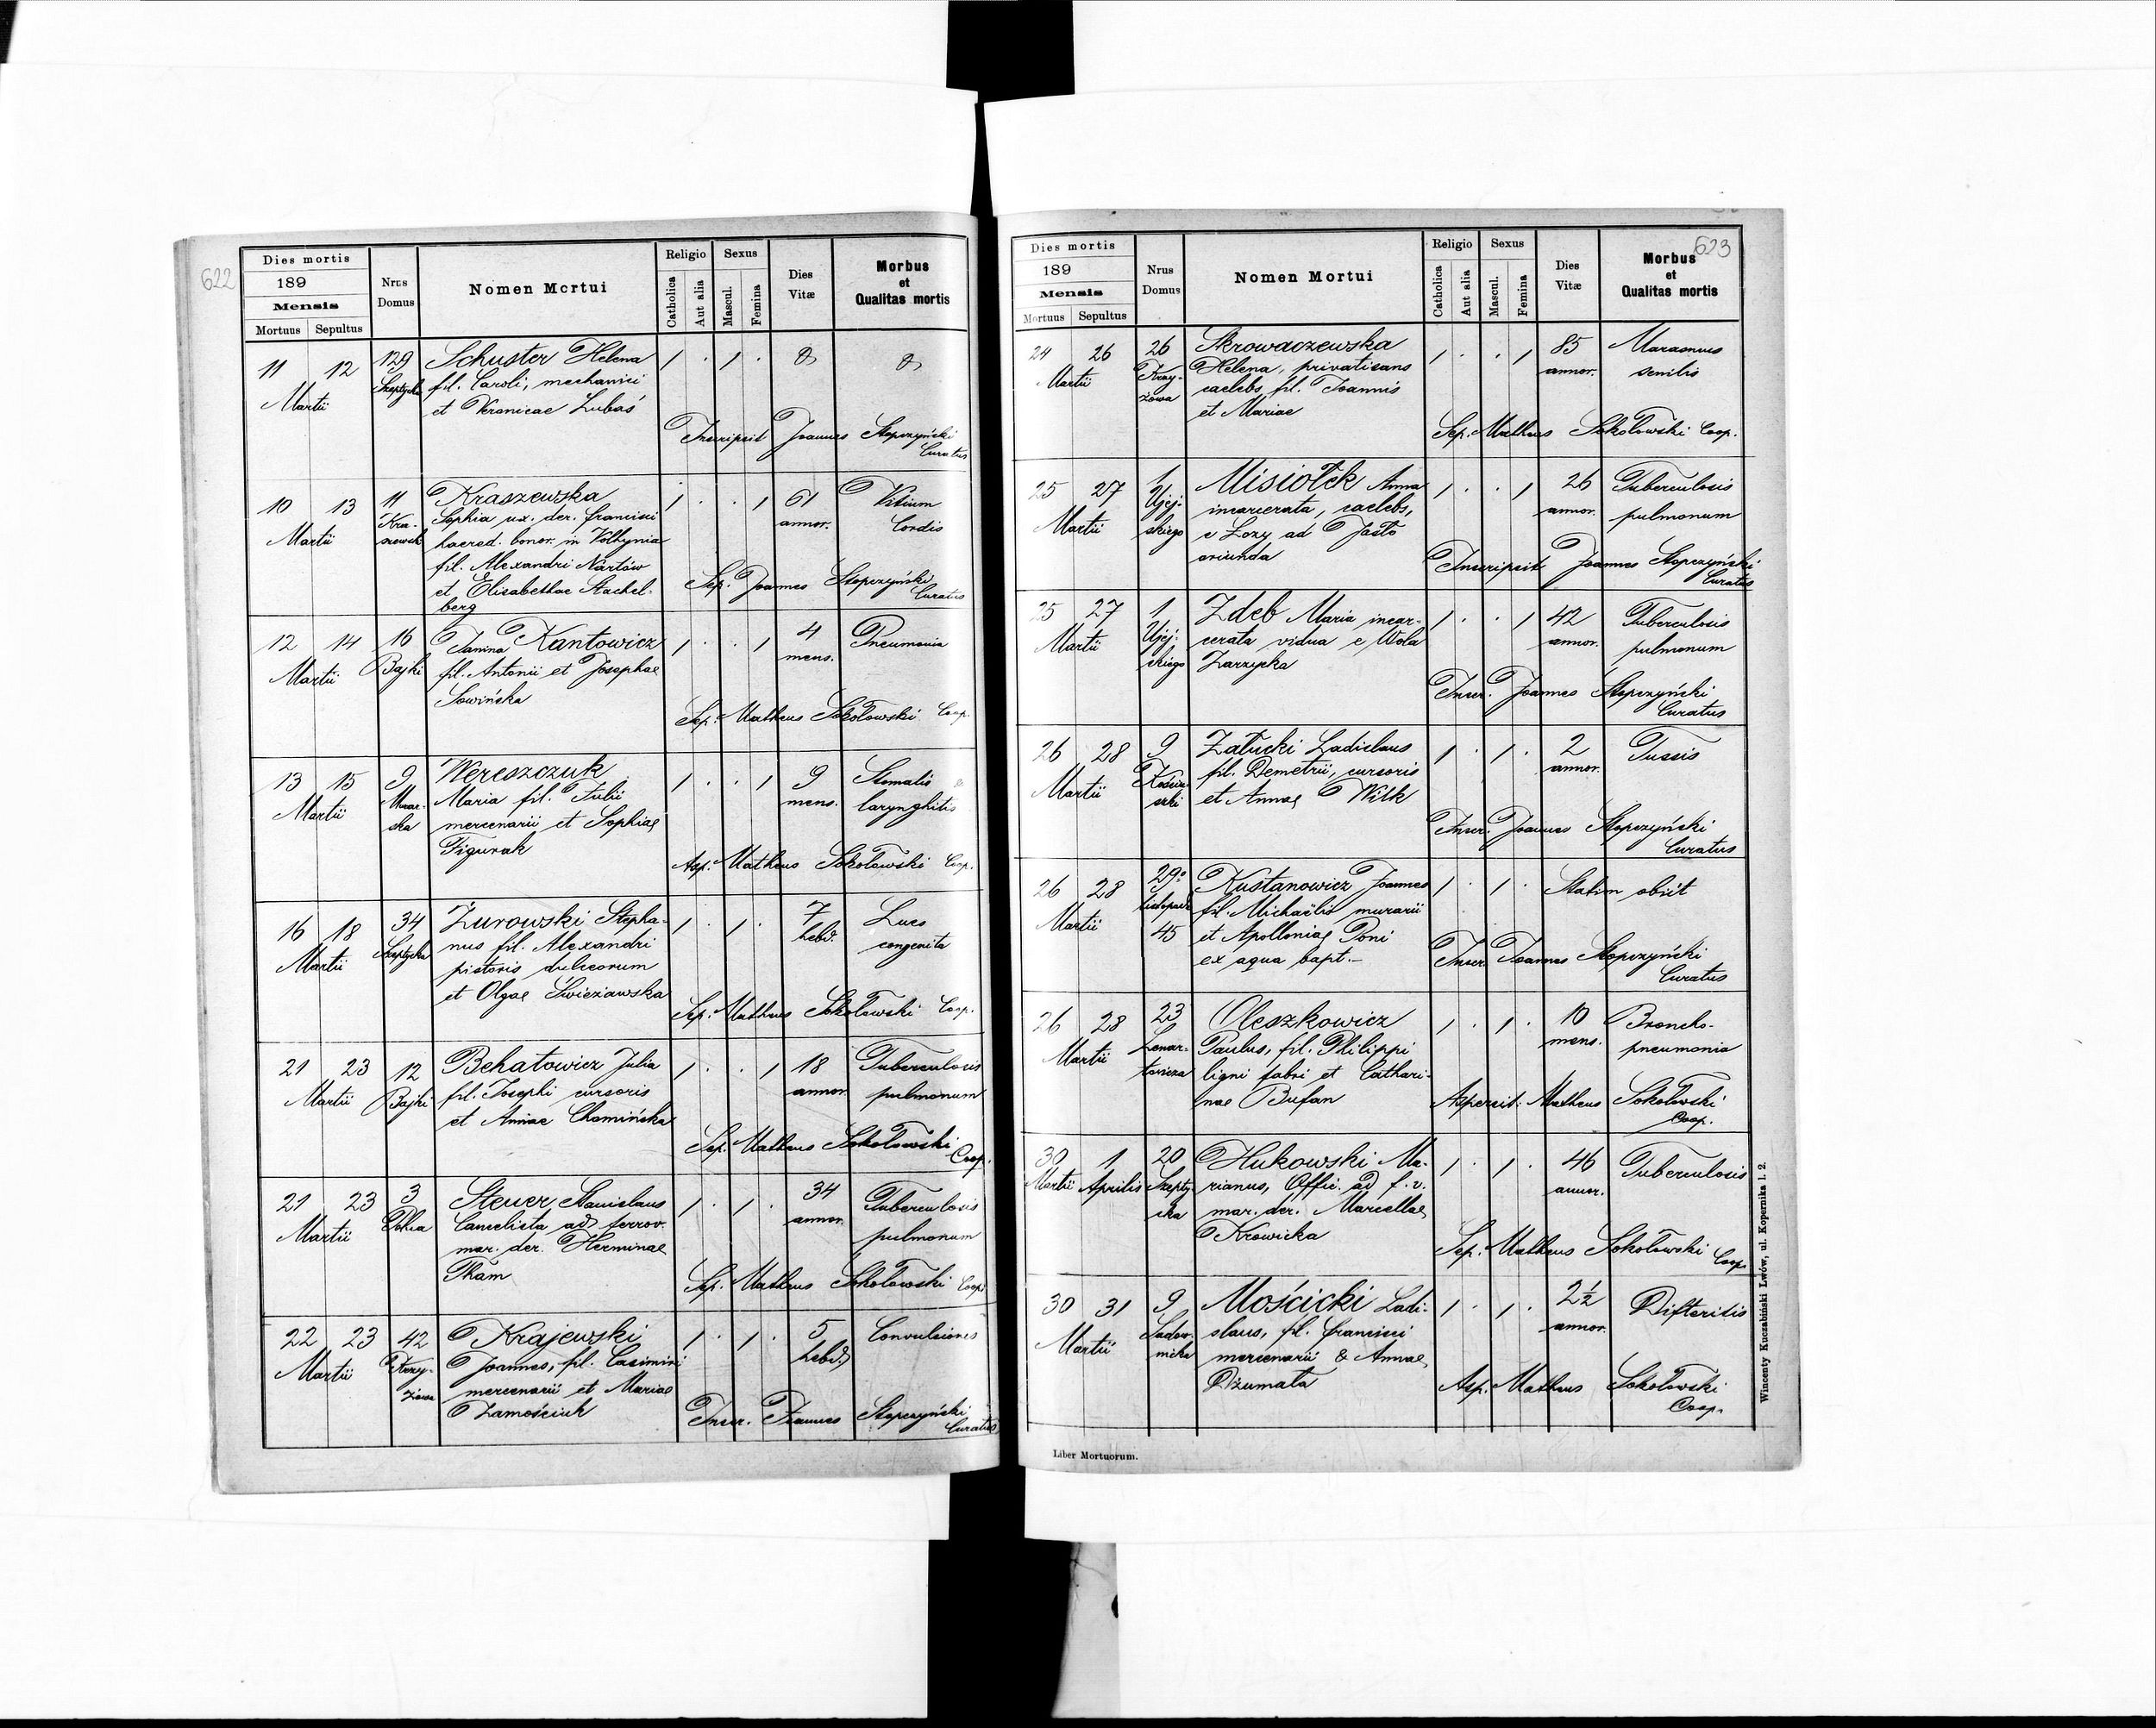 622
Dies mortis
189
Mensis
Mortuus Sepultus
Nrus Domus
Nomen Mortui
Religio
Catholica
Aut alia
Sexus
Mascul.
Femina
Dies Vitæ
Morbus et Qualitas mortis
11 12 129 Schuster Helena 1 . 1 .
Martii Szeptycka fil. Caroli, mechanici
et Veronicae Lubaś
Inscripsit Joannes Stopczyński
Curatus
10 13 11 Kraszewska 1 . . 1 61 Vitium
Martii Kra- Sophia ux. der. Francisci annor. Cordis
szewsk haered. bonor. in Volhynia
fil. Alexandri Nartów
et Elisabethae Stachel-
berg
Sep. Joannes Stopczyński
Curatus
12 14 16 Janina Kantowicz 1 . . 1 4 Pneumonia
Martii Bajki fil. Antonii et Josephae mens.
Sowińska
Sep. Matheus Sokołowski Coop.
13 15 9 Wereszczuk 1 . . 1 9 Stomatis &
Martii Maria fil. Julii mens. larynghitis
ska mercenarii et Sophiae
Figurak
Asp. Matheus Sokołowski Coop.
16 18 34 Żurowski Stepha- 1 . 1 . 7 Lues
Martii Szeptycka nus fil. Alexandri hebd. congenita
pistoris dulceorum
et Olgae Świeżawska
Sep. Matheus Sokołowski Coop.
21 23 12 Behatowicz Julia 1 . . 1 18 Tuberculosis
Martii Bajki fil. Josephi cursoris annor. pulmonum
et Annae Chomińska
Sep. Matheus Sokołowski
Coop.
21 23 3 Steuer Stanislaus 1 . 1 . 34 Tuberculosis
Martii Cancelista ad ferrov. annor. pulmonum
mar. der. Herminae
Thäm
Sep. Matheus Sokołowski Coop.
22 23 42 Krajewski 1 . 1 . 5 Convulsiones
Martii Krzy- Joannes, fil. Casimiri hebd.
żowa mercenarii et Mariae
Zamościuk
Inscr. Joannes Stopczyński
Curatus
623
Dies mortis
189
Mensis
Mortuus Sepultus
Nrus Domus
Nomen Mortui
Religio
Catholica
Aut alia
Sexus
Mascul.
Femina
Dies Vitæ
Morbus et Qualitas mortis
24 26 26 Skrowaczewska 1 . . 1 85 Marasmus
Martii Krzy- Helena, privatisans annor. senilis
żowa caelebs, fil. Joannis
et Mariae
Sep. Matheus Sokołowski Coop.
25 27 1 Misiołek Anna 1 . . 1 26 Tuberculosis
Martii Ujej- incarcerata, caelebs, annor. pulmonum
skiego e Łozy ad Jasło
oriunda
Inscripsit Joannes Stopczyński
Curatus
25 27 1 Zdeb Maria incar- 1 . . 1 42 Tuberculosis
Martii Ujej- cerata vidua e Wola annor. pulmonum
skiego Zarzycka
Inscr. Joannes Stopczyński
Curatus
26 28 9 Załucki Ladislaus 1 . 1 . 2 Tussis
Martii fil. Demetrii, cursoris annor.
et Annae Wilk
Inscr. Joannes Stopczyński
Curatus
26 28 29o Kustanowicz Joannes 1 . 1 . Statim obiit
Martii Listopada fil. Michaëlis murarii
45 et Apolloniae Poni
ex aqua bapt.-
Inscr. Joannes Stopczyński
Curatus
26 28 23 Oleszkowicz 1 . 1 . 10 Broncho-
Martii Lenar- Paulus, fil. Philippi mens. pneumonia
towicza ligni fabri et Cathari-
nae Bufan
Aspersit: Matheus Sokołowski
Coop.
30 1 20 Hukowski Ma- 1 . 1 . 46 Tuberculosis
Martii Aprilis Szepty- rianus, Offic. ad f. v. annor.
cka mar. der. Marcellae
Krowicka
Sep. Matheus Sokołowski
Coop.
30 31 9 Mościcki Ladi- 1 . 1 . 2½ Difteritis
Martii Sadow- slaus, fil. Francisci annor.
nicka mercenarii & Annae
Dżumała
Asp. Matheus Sokołowski
Coop.
Liber Mortuorum.
Wincenty Kuczabiński Lwów, ul. Kopernika l. 2.